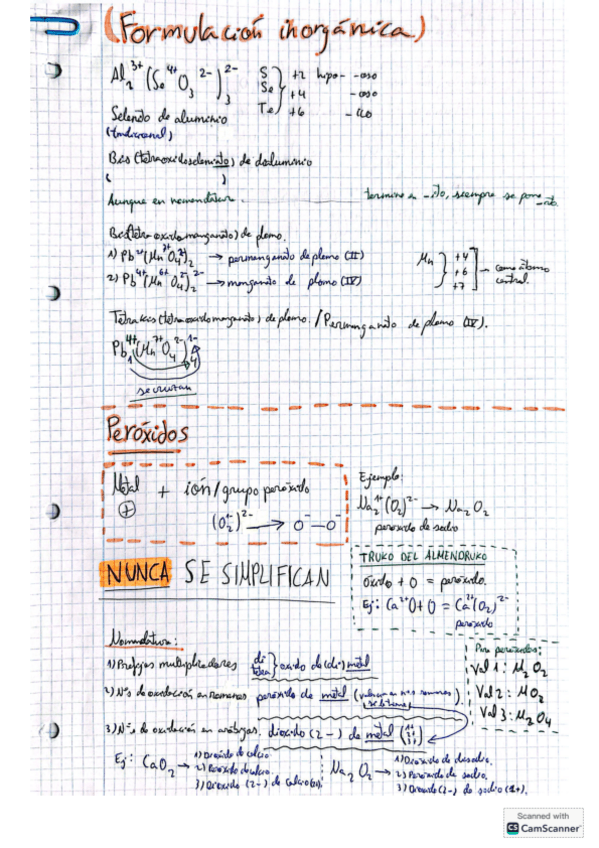 (Formulación inorgánica)
Al₂³⁺(Se⁴⁺O₃²⁻)₃²⁻
S
Se
Te
+2 hipo- -oso
+4 -oso
+6 -ico
de aluminio
de dialuminio
( )
Aunque en nomenclatura - termine en -ito, siempre se pone -ato.
de plomo.
1) Pb²⁺(Mn⁷⁺O₄²⁻)₂ → permanganato de plomo (II)
2) Pb⁴⁺(Mn⁶⁺O₄²⁻)₂²⁻ → manganato de plomo (IV)
Mn
+4
+6
+7
- como átomo central.
de plomo. / Permanganato de plomo (IV).
Pb⁴⁺(Mn⁷⁺O₄²⁻)₄¹⁻
se cruzan
Peróxidos
Metal + ión/grupo peróxido
⊕ (O₂)²⁻ → O⁻—O⁻
Ejemplo:
Na₂¹⁺(O₂)²⁻ → Na₂O₂
peróxido de sodio
NUNCA SE SIMPLIFICAN
TRUKO DEL ALMENDRUKO
óxido + O = peróxido.
Ej: Ca²⁺O + O = Ca²⁺(O₂)²⁻
peróxido
Nomenclatura:
1) Prefijos multiplicadores di óxido de (di) metal
2) Nºs de oxidación en romanos peróxido de metal
3) Nºs de oxidación en arábigos. dióxido (2-) de metal
Para peróxidos:
Val 1: M₂O₂
Val 2: MO₂
Val 3: M₂O₄
Ej: CaO₂ →
1) Dióxido de calcio
2) Peróxido de calcio.
3) Dióxido (2-) de calcio
Na₂O₂ →
1) Dióxido de disodio.
2) Peróxido de sodio.
3) Dióxido (2-) de sodio (1+).
Scanned with
CS CamScanner